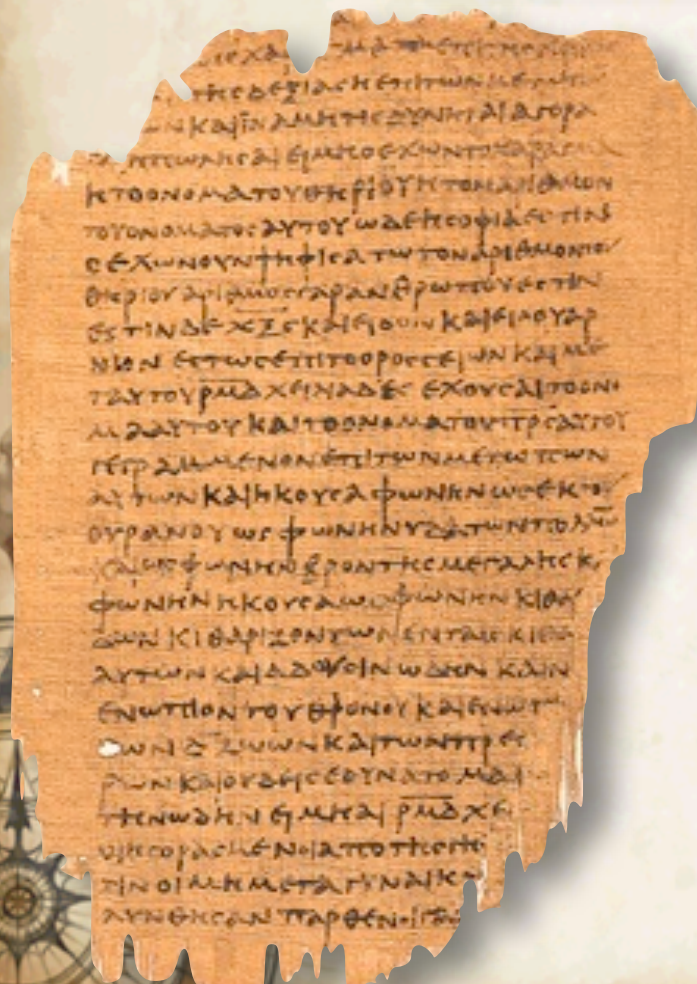 ΜΑΤΑΕΠΙ
ΤΗCΔΕΞΙΑCΗΕΠΙΤΩΝΜΕΤ
ΩΝΚΑΙΪΝΑΜΗΤΙCΔΥΝΗΤΑΙΑΓΟΡΑ
ΗΠΩΛΗCΑΙΕΙΜΗΟΕΧΩΝΤΟΧΑΡΑΓ
ΗΤΟΟΝΟΜΑΤΟΥΘΗΡΙΟΥΗΤΟΝΑΡΙΘΜΟΝ
ΤΟΥΟΝΟΜΑΤΟCΑΥΤΟΥΩΔΕΗCΟΦΙΑΕCΤΙΝΟ
CΕΧΩΝΟΥΝΨΗΦΙCΑΤΩΤΟΝΑΡΙΘΜΟΝΤΟΥ
ΘΗΡΙΟΥΑΡΙΘΜΟCΓΑΡΑΝΘΡΩΠΟΥΕCΤΙΝ
ΕCΤΙΝΔΕΧ̅Ξ̅Ϛ̅ΚΑΙΕΙΔΟΝΚΑΙΕΙΔΟΥΑΡ
ΝΙΟΝΕCΤΩCΕΠΙΤΟΟΡΟCCΕΙΩΝΚΑΙΜΕ
ΤΑΥΤΟΥΡ̅Μ̅Δ̅ΧΕΙΛΙΑΔΕCΕΧΟΥCΑΙΤΟΟΝΟ
ΜΑΑΥΤΟΥΚΑΙΤΟΟΝΟΜΑΤΟΥΠ̅Ρ̅C̅ΑΥΤΟΥ
ΓΕΓΡΑΜΜΕΝΟΝΕΠΙΤΩΝΜΕΤΩΠΩΝ
ΑΥΤΩΝΚΑΙΗΚΟΥCΑΦΩΝΗΝΩCΕΚΤΟΥ
ΟΥΡΑΝΟΥΩCΦΩΝΗΝΥΔΑΤΩΝΠΟΛΛΩ̅
ΚΑΙΩCΦΩΝΗΝΒΡΟΝΤΗCΜΕΓΑΛΗCΚ
ΦΩΝΗΝΗΚΟΥCΑΩCΦΩΝΗΝΚΙΘΑ
ΔΩΝΚΙΘΑΡΙΖΟΝΤΩΝΕΝΤΑΙCΚΙΘΑ
ΑΥΤΩΝΚΑΙΑΔΟΥCΙΝΩΔΗΝΚΑΙΝ
ΕΝΩΠΙΟΝΤΟΥΘΡΟΝΟΥΚΑΙΕΝΩΠ
ΩΝΔ̅ΖΩΩΝΚΑΙΤΩΝΠΡΕC
ΡΩΝΚΑΙΟΥΔΕΙCΕΔΥΝΑΤΟΜΑ
ΤΗΝΩΔΗΝΕΙΜΗΑΙΡ̅Μ̅Δ̅ΧΕ
ΟΙΗΓΟΡΑCΜΕΝΟΙΑΠΟΤΗCΓΗC
ΤΙΝΟΙΜΗΜΕΤΑΓΥΝΑΙΚΩ
ΛΥΝΘΗCΑΝΠΑΡΘΕΝΟΙΓΑ